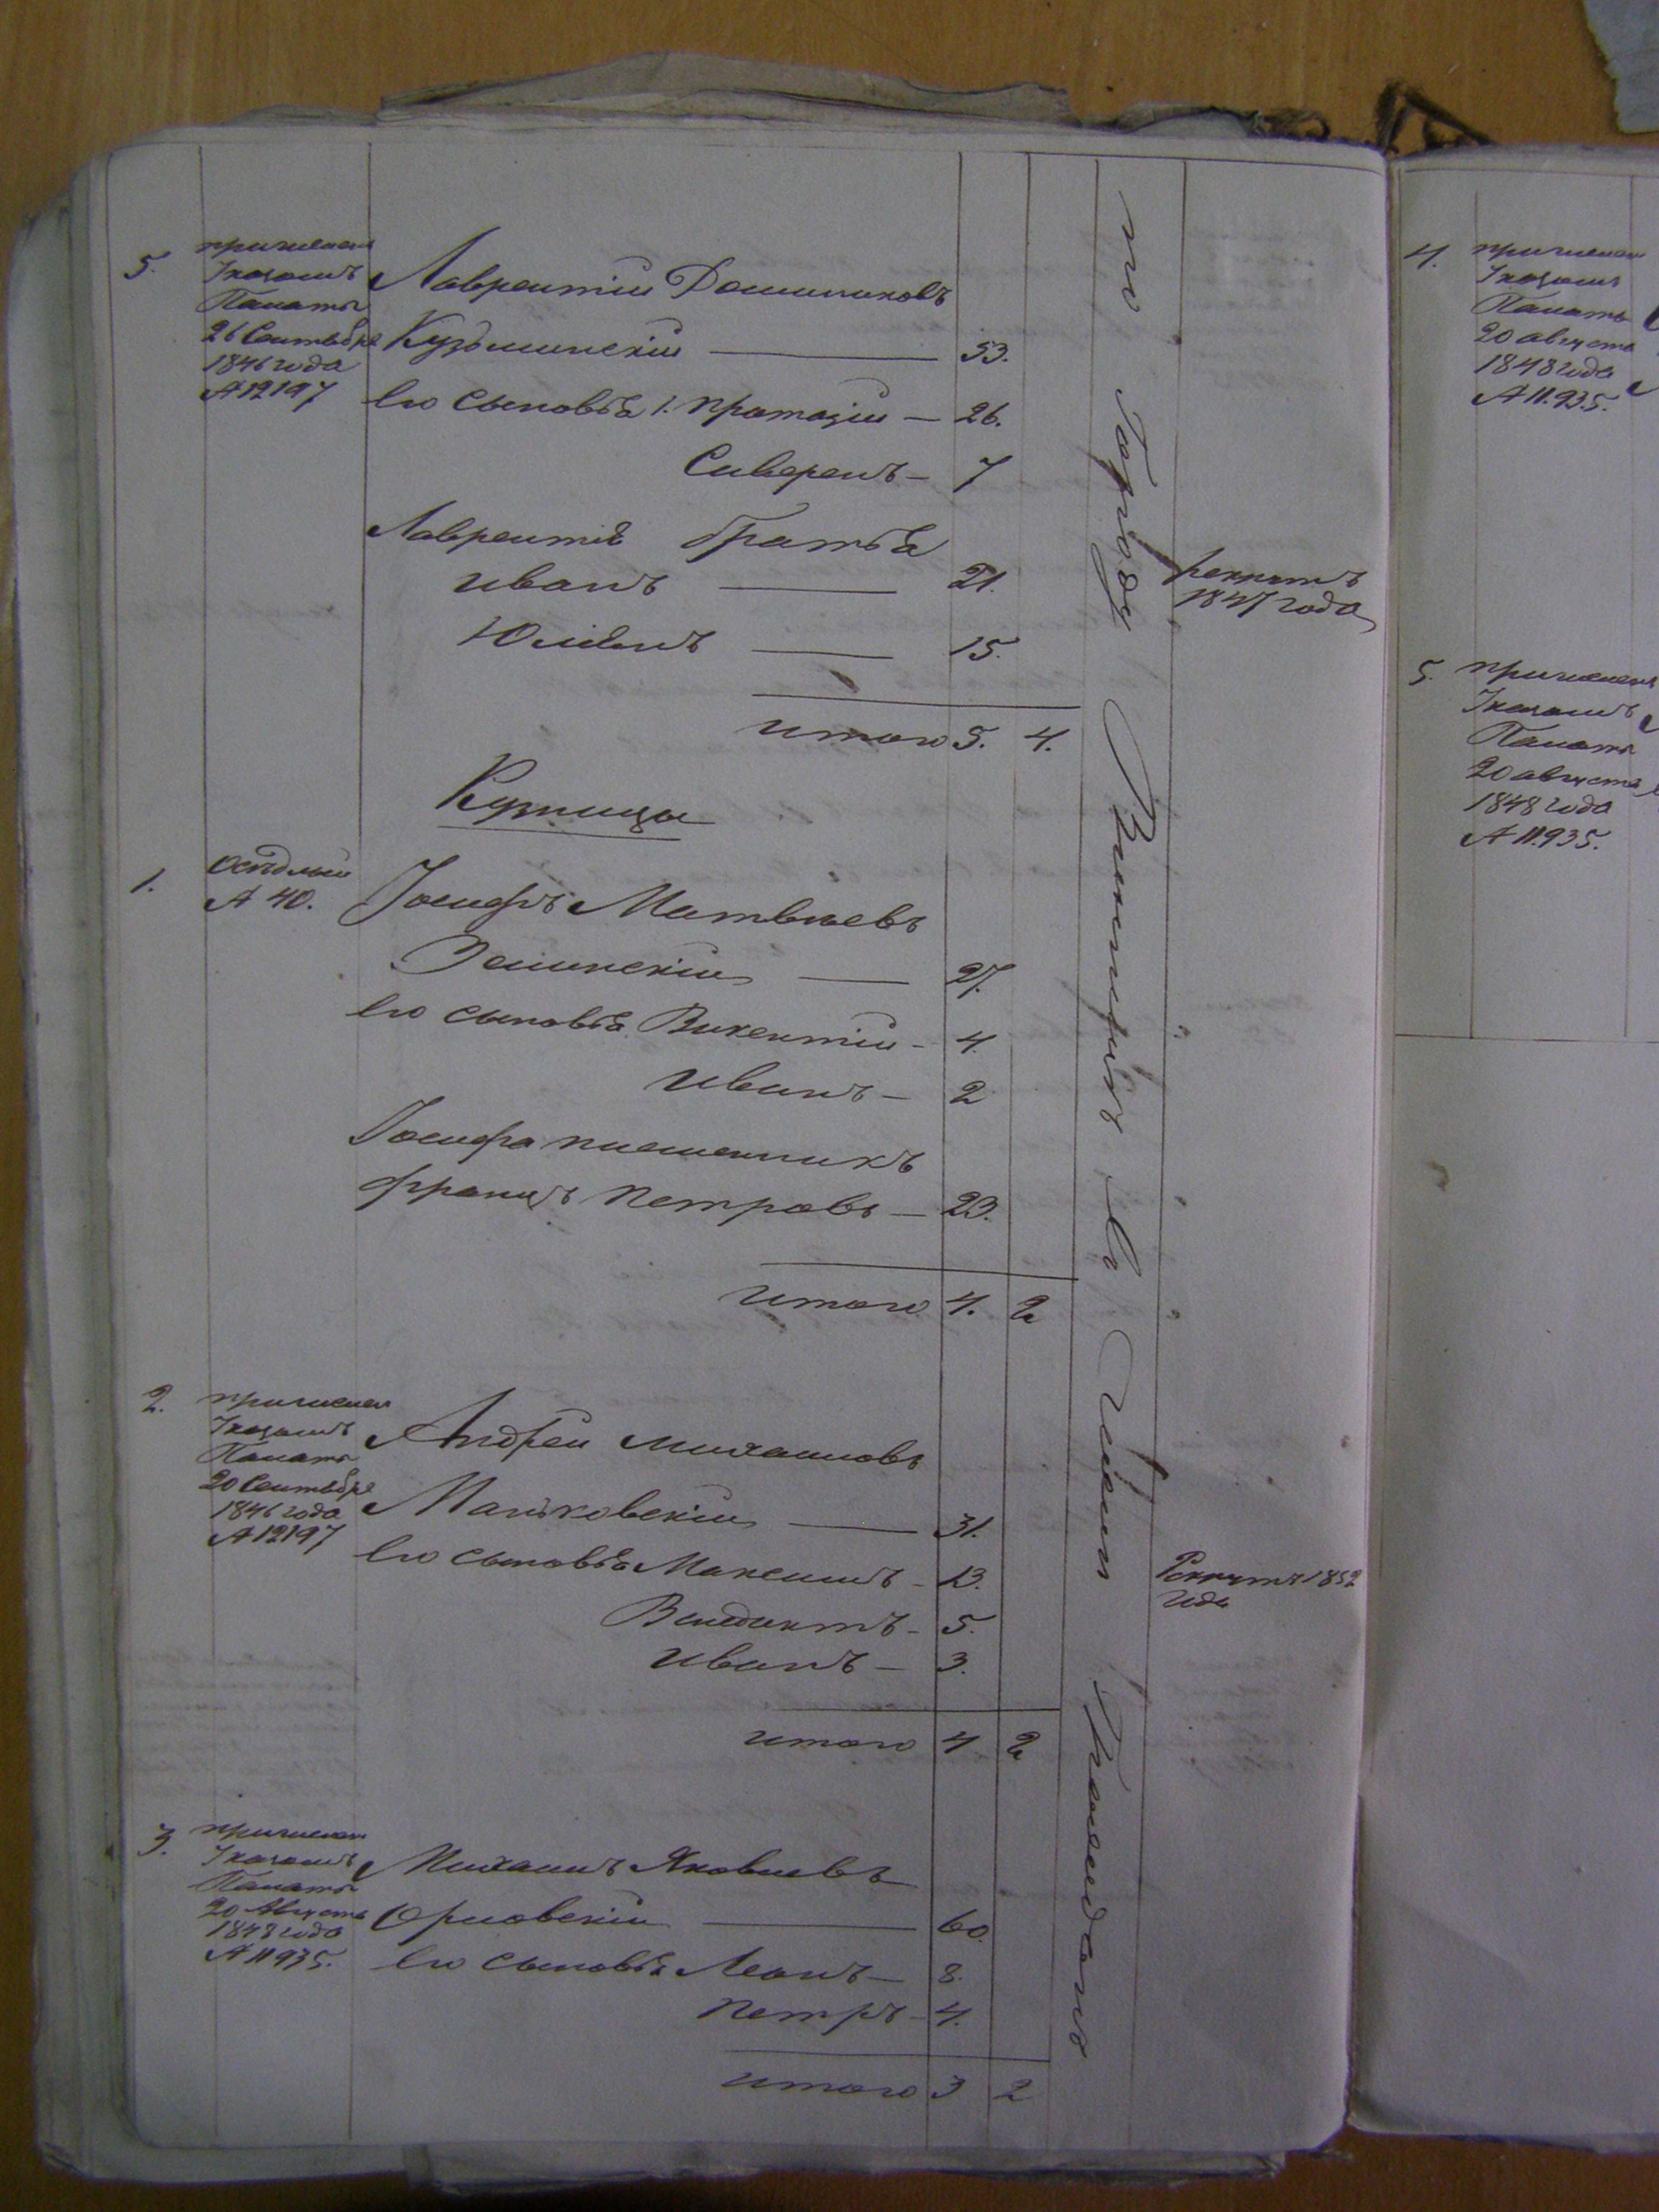 5.
причислен
Указомъ
Палаты
26 Сентября
1846 года
№12197
Лаврентій Доминиковъ
Кузьминскій — 53.
Его сыновья 1. Протазій — 26.
Северинъ — 7
Лаврентія братья
Иванъ — 21.
рекрутъ
1847 года
Юліянъ — 15.
Итого 5. 4.
Купицы
1.
Осѣдлый
№ 40.
Іосифъ Матвѣевъ
Зелинскій — 27.
Его сыновья Викентій — 4.
Иванъ — 2
Іосифа племенникъ
Францъ Петровъ — 23.
Итого 4. 2
2.
причислен
Указомъ
Палаты
20 Сентября
1846 года
№12197
Андрей Михайловъ
Маньковскій — 31.
Его сыновья Максимъ — 13.
Рекрутъ 1852
года
Венедиктъ — 5.
Иванъ — 3.
Итого 4 2
3.
причислен
Указомъ
Палаты
20 Августа
1848 года
№11935.
Михаилъ Яковлевъ
Орловскій — 60.
Его сыновья Леонъ — 8.
Петръ — 4.
Итого 3 2
по Городу
гражданъ
4.
причислен
Указомъ
Палаты
20 августа
1848 года
№11.935.
5.
причислен
Указомъ
Палаты
20 августа
1848 года
№11.935.